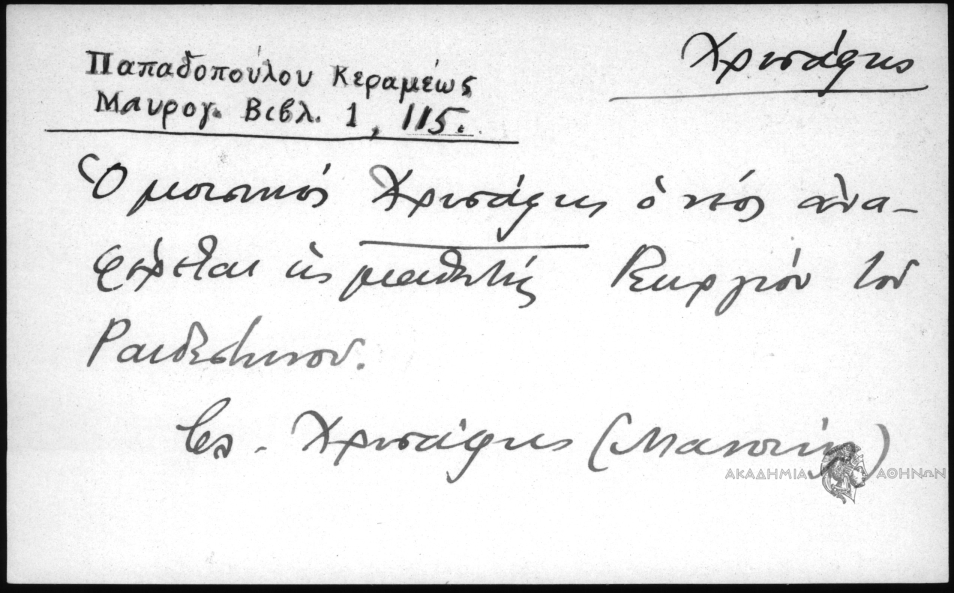 Χρυσάφης
Παπαδοπούλου Κεραμέως
Μαυρογ. Βιβλ. 1, 115.
Ὁ μουσικός Χρυσάφης ὁ νέος ἀνα-
φέρεται ὡς μαθητής Γεωργίου τοῦ
Ραιδεστηνοῦ.
βλ. Χρυσάφης (Μανουήλ)
ΑΚΑΔΗΜΙΑ ΑΘΗΝΩΝ